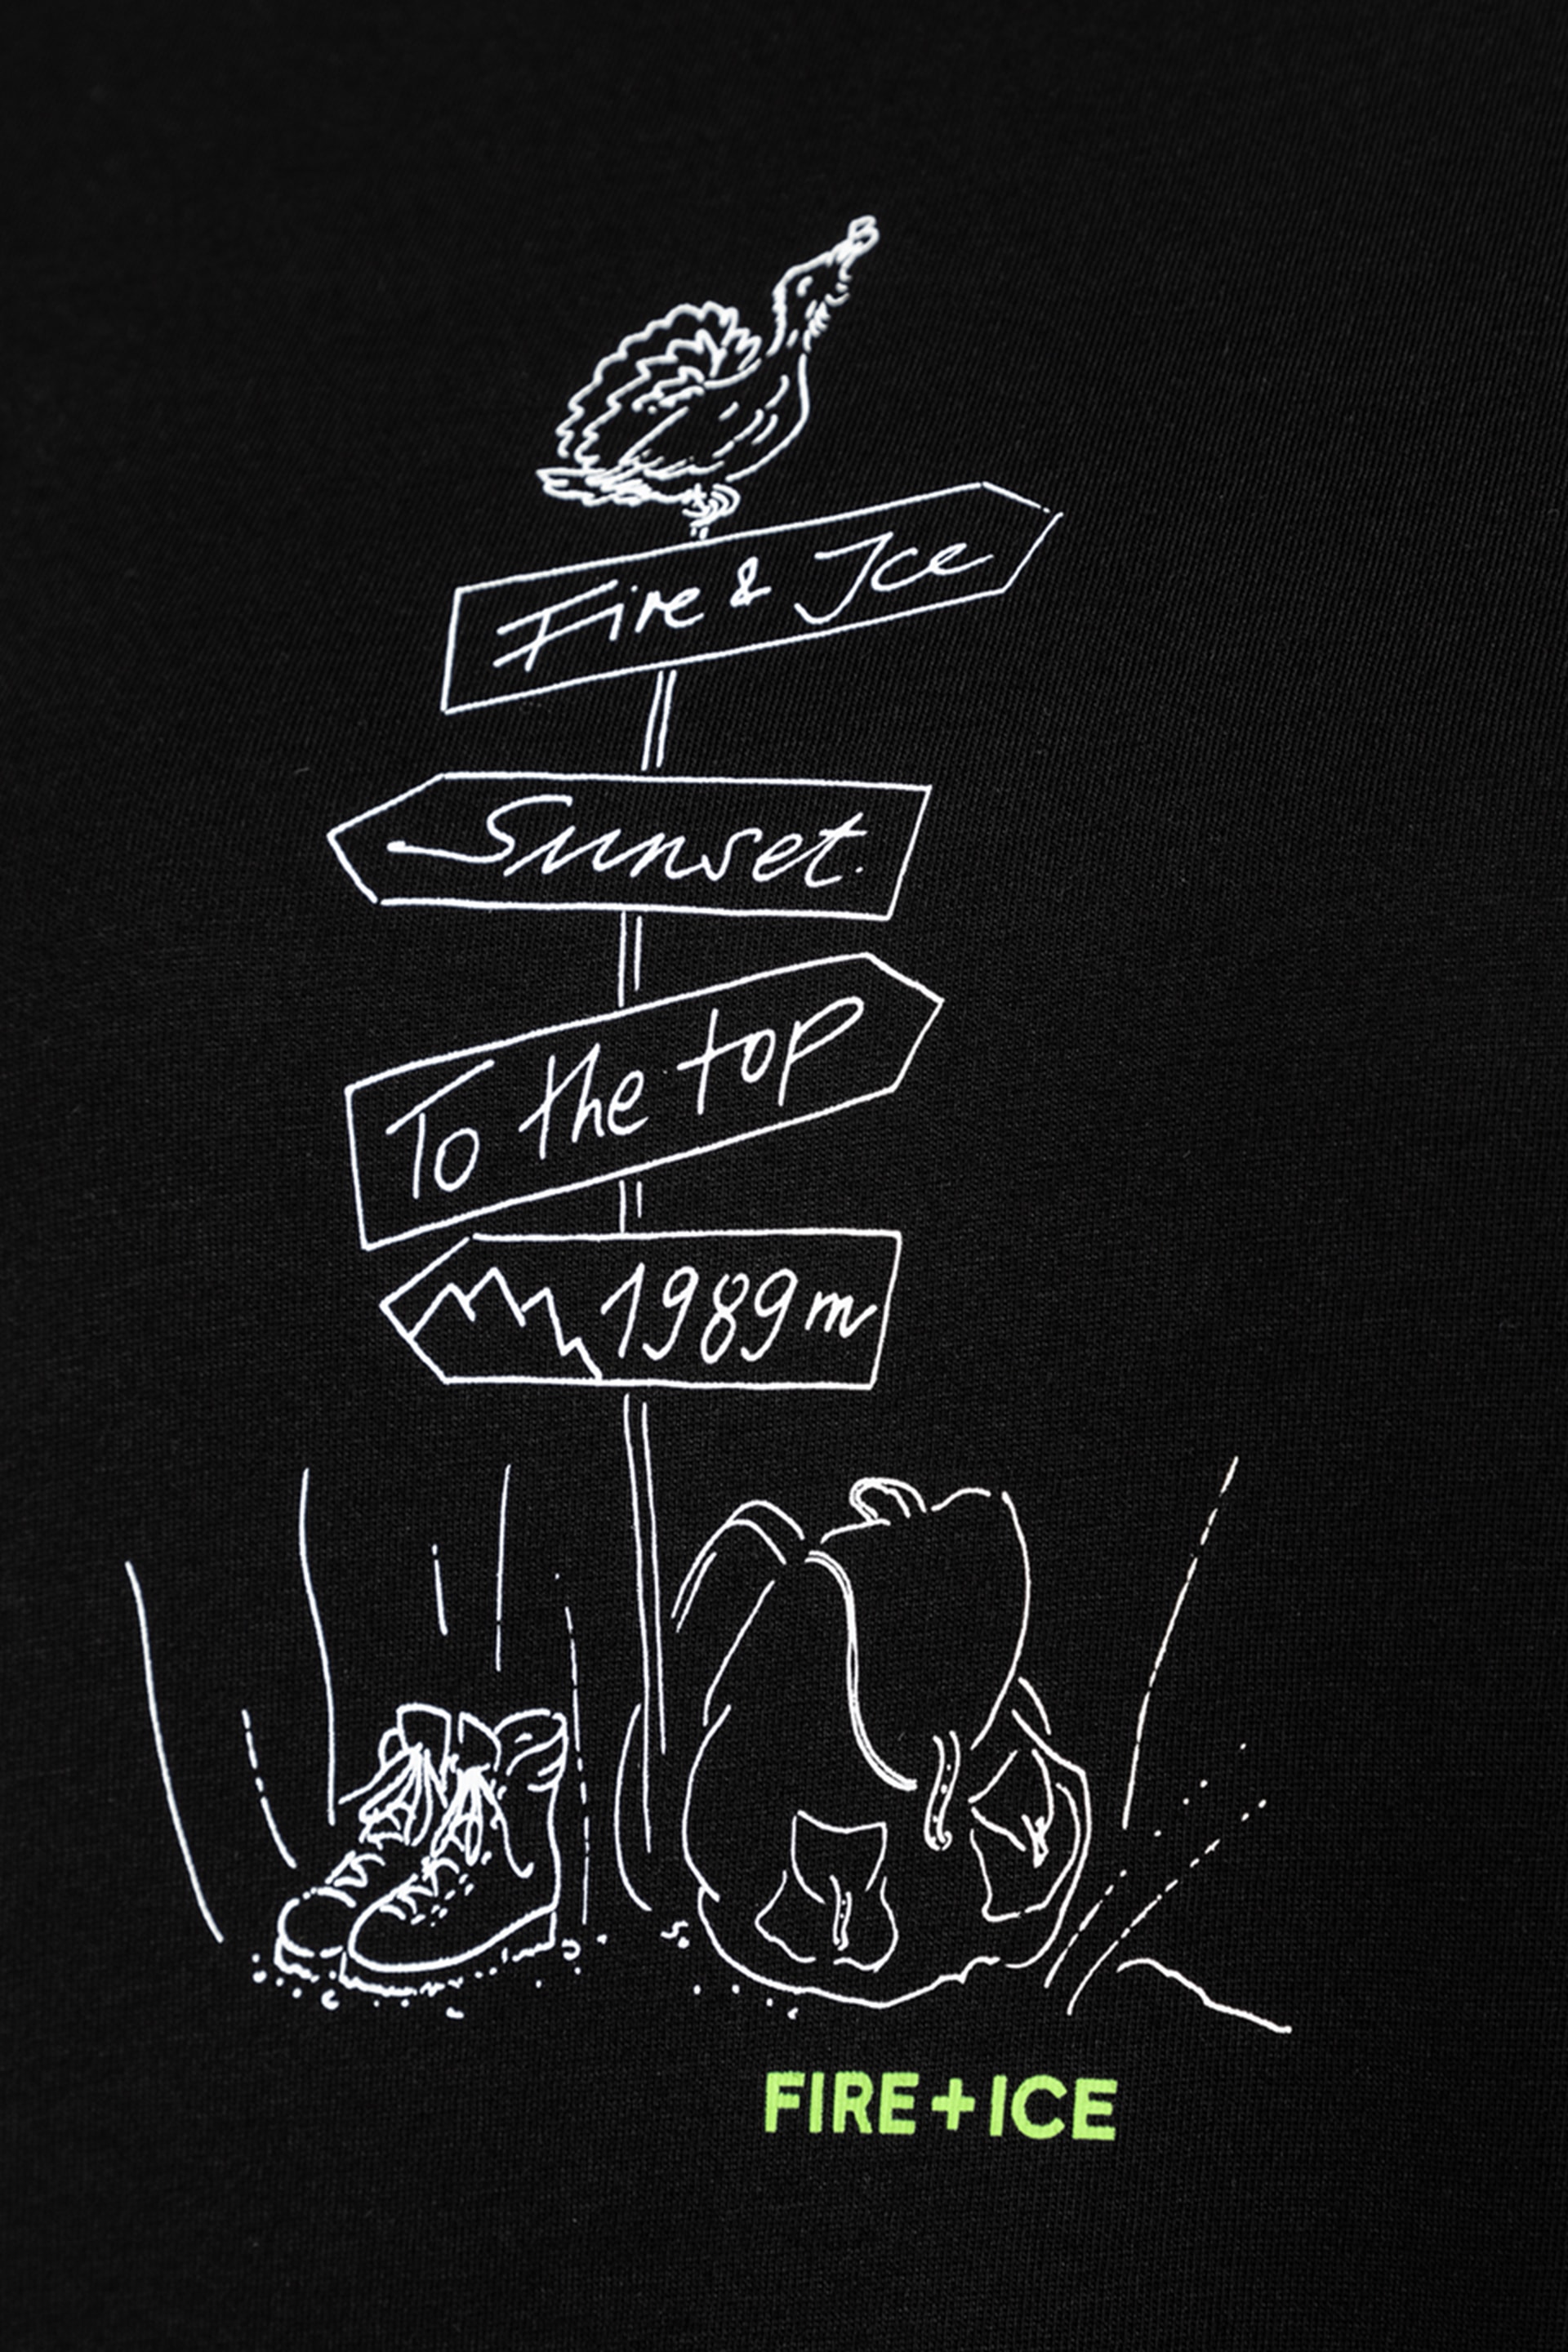 Fire & Ice
Sunset
To the top
1989m
FIRE+ICE